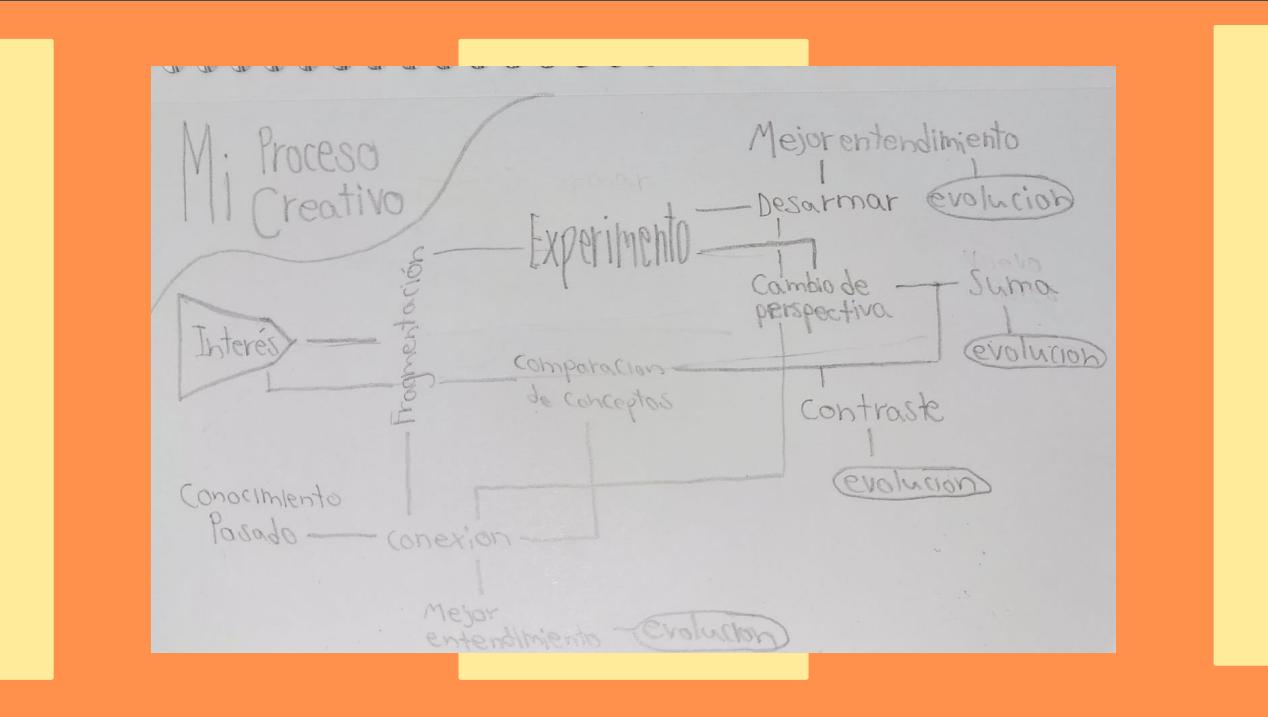 Mi Proceso
Creativo
Mejor entendimiento
Desarmar
evolucion
Experimento
Fragmentación
Cambio de
perspectiva
Suma
evolucion
Interés
Comparacion
de conceptos
Contraste
evolucion
Conocimiento
Pasado
conexion
Mejor
entendimiento
evolucion